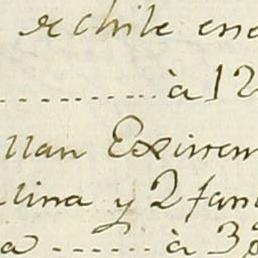 rchile ene
......... à 12
llan Exirrem
lina y 2 fan
a ...... à 3